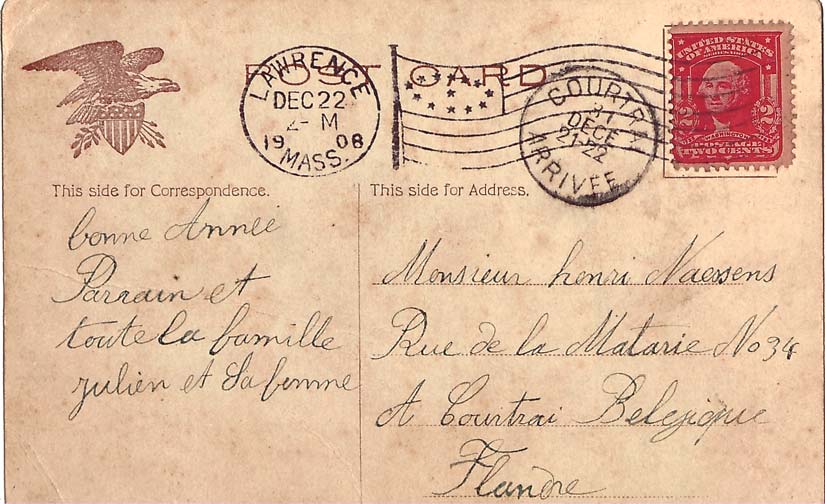 POST CARD
LAWRENCE
DEC 22
2- M
1908
MASS.
COURTRAI
31
DECE
21-22
ARRIVEE
UNITED STATES
OF AMERICA
SERIES 1902
2 2
WASHINGTON
POSTAGE
TWO CENTS
This side for Correspondence.
This side for Address.
bonne Année
Parrain et
toute la famille
julien et Sa femme
Monsieur henri Naessens
Rue de la Matarie No 34
A Courtrai Belegique
Flandre